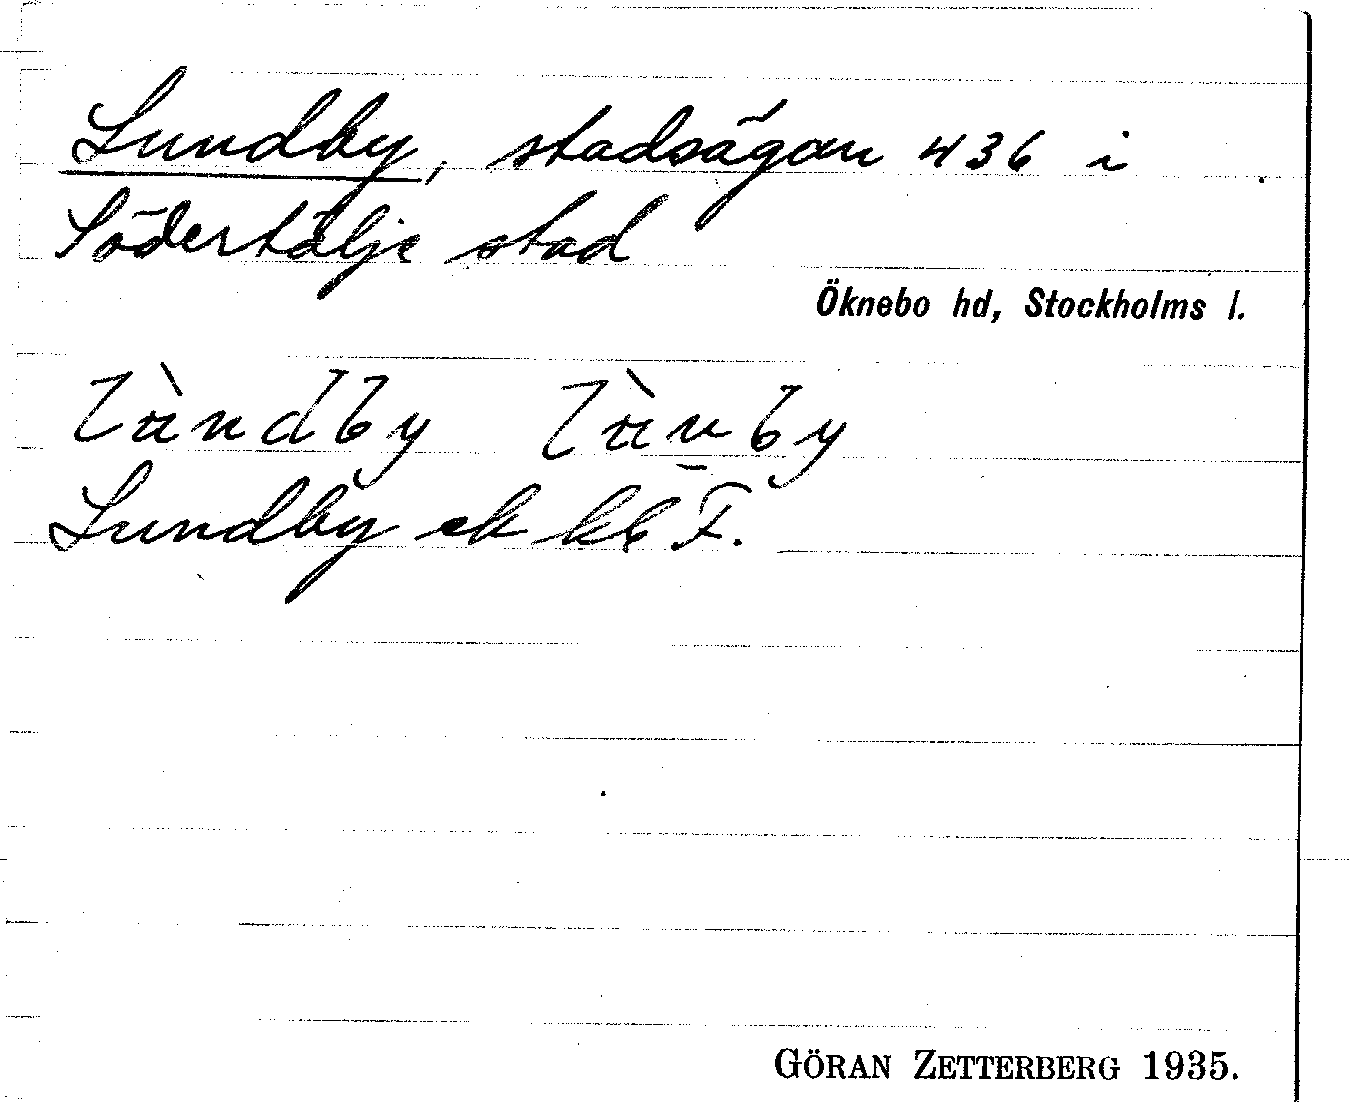 Lundby, stadsägan 436 i
Södertälje stad
Öknebo hd, Stockholms l.
lùndby lùnby
Lundby ek kb F.
GÖRAN ZETTERBERG 1935.